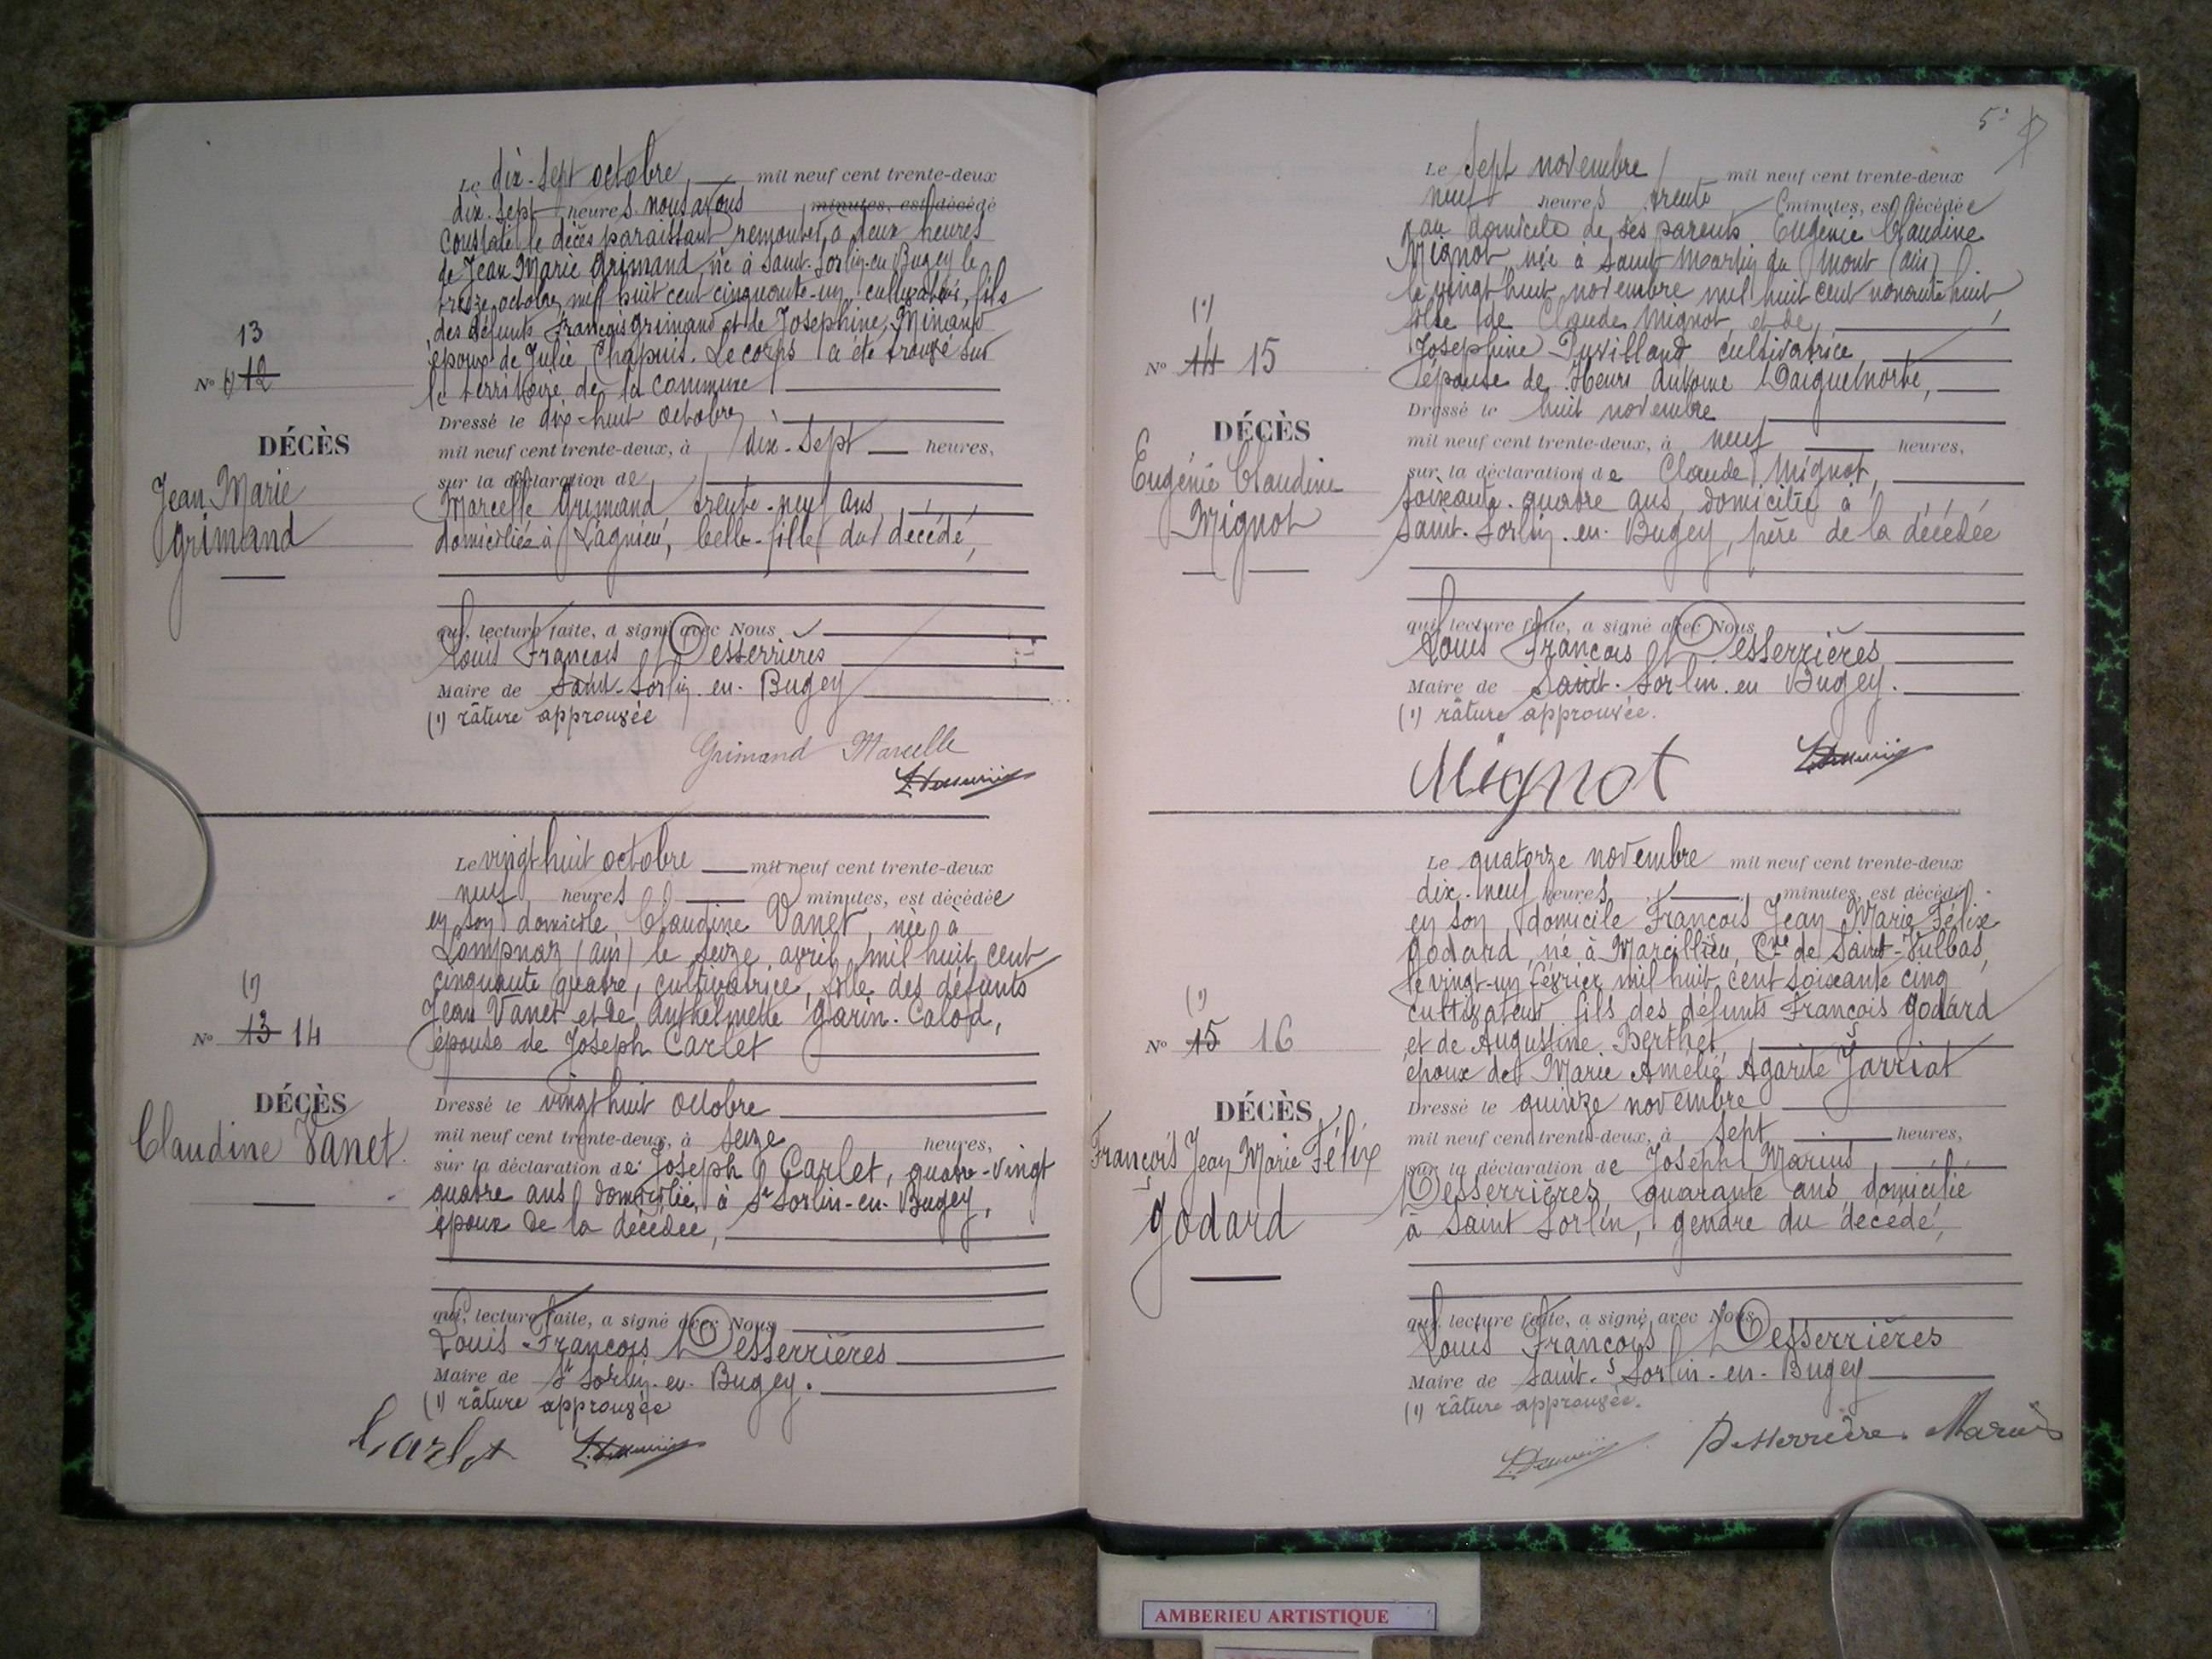 Le dix-sept octobre, mil neuf cent trente-deux
dix-sept heures nous avons minutes, est décédé
constaté le décès paraissant remonter à deux heures
de Jean Marie Grimand, né à Saint-Sorlin-en Bugey le
treize octobre mil huit cent cinquante-un, cultivateur, fils
des défunts François Grimand et de Josephine Minand
époux de Julie Chapuis. Le corps a été trouvé sur
le territoire de la commune
Dressé le dix-huit octobre
mil neuf cent trente-deux, à dix-sept heures,
sur la déclaration de
Marcelle Grimand trente-neuf ans,
domiciliée à Lagnieu, belle-fille du décédé,
qui, lecture faite, a signé avec Nous
Louis François Desserrières
Maire de Saint-Sorlin-en-Bugey
(1) râture approuvée
Grimand Marcelle
13
No (1) 12
DÉCÈS
Jean Marie
Grimand
Le vingt huit octobre mil neuf cent trente-deux
neuf heures minutes, est décédée
en son domicile Claudine Vanet, née à
Lompnaz (ain) le seize avril mil huit cent
cinquante quatre, cultivatrice, fille des défunts
Jean Vanet et de Anthelmette Garin-Calod,
épouse de Joseph Carlet
Dressé le vingt huit octobre
mil neuf cent trente-deux, à seize heures,
sur la déclaration de Joseph Carlet, quatre-vingt
quatre ans domicilié à St Sorlin-en-Bugey,
époux de la décédée,
qui, lecture faite, a signé avec Nous
Louis-François Desserrières
Maire de St Sorlin-en-Bugey.
(1) râture approuvée
Carlet
(1)
No 13 14
DÉCÈS
Claudine Vanet.
5
Le sept novembre mil neuf cent trente-deux
neuf heures trente minutes, est décédée
au domicile de ses parents Eugénie Claudine
Mignot née à Saint Martin du Mont (ain)
le vingt huit novembre mil huit cent nonante huit
fille de Claude Mignot et de
Josephine Puvilland cultivatrice
épouse de Henri Antoine Daiguemorte,
Dressé le huit novembre
mil neuf cent trente-deux, à neuf heures,
sur la déclaration de Claude Mignot,
soixante-quatre ans, domicilié à
Saint-Sorlin-en-Bugey, père de la décédée
qui, lecture faite, a signé avec Nous
Louis François Desserrières
Maire de Saint-Sorlin-en Bugey.
(1) râture approuvée.
Mignot
(1)
No 14 15
DÉCÈS
Eugénie Claudine
Mignot
Le quatorze novembre mil neuf cent trente-deux
dix-neuf heures minutes, est décédé
en son domicile François Jean Marie Félix
Godard, né à Marcillieu, Cne de Saint-Vulbas,
le vingt-un février mil huit cent soixante cinq
cultivateur fils des défunts François Godard
et de Augustine Berthet,
époux de Marie Amélie Agarite Jarriat
Dressé le quinze novembre
mil neuf cent trente-deux, à sept heures,
sur la déclaration de Joseph Marius
Desserrières quarante ans domicilié
à Saint Sorlin, gendre du décédé,
qui, lecture faite, a signé avec Nous
Louis François Desserrières
Maire de Saint-Sorlin-en-Bugey
(1) râture approuvée.
Desserrière Marius
(1)
No 15 16
DÉCÈS
François Jean Marie Félix
Godard
AMBERIEU ARTISTIQUE